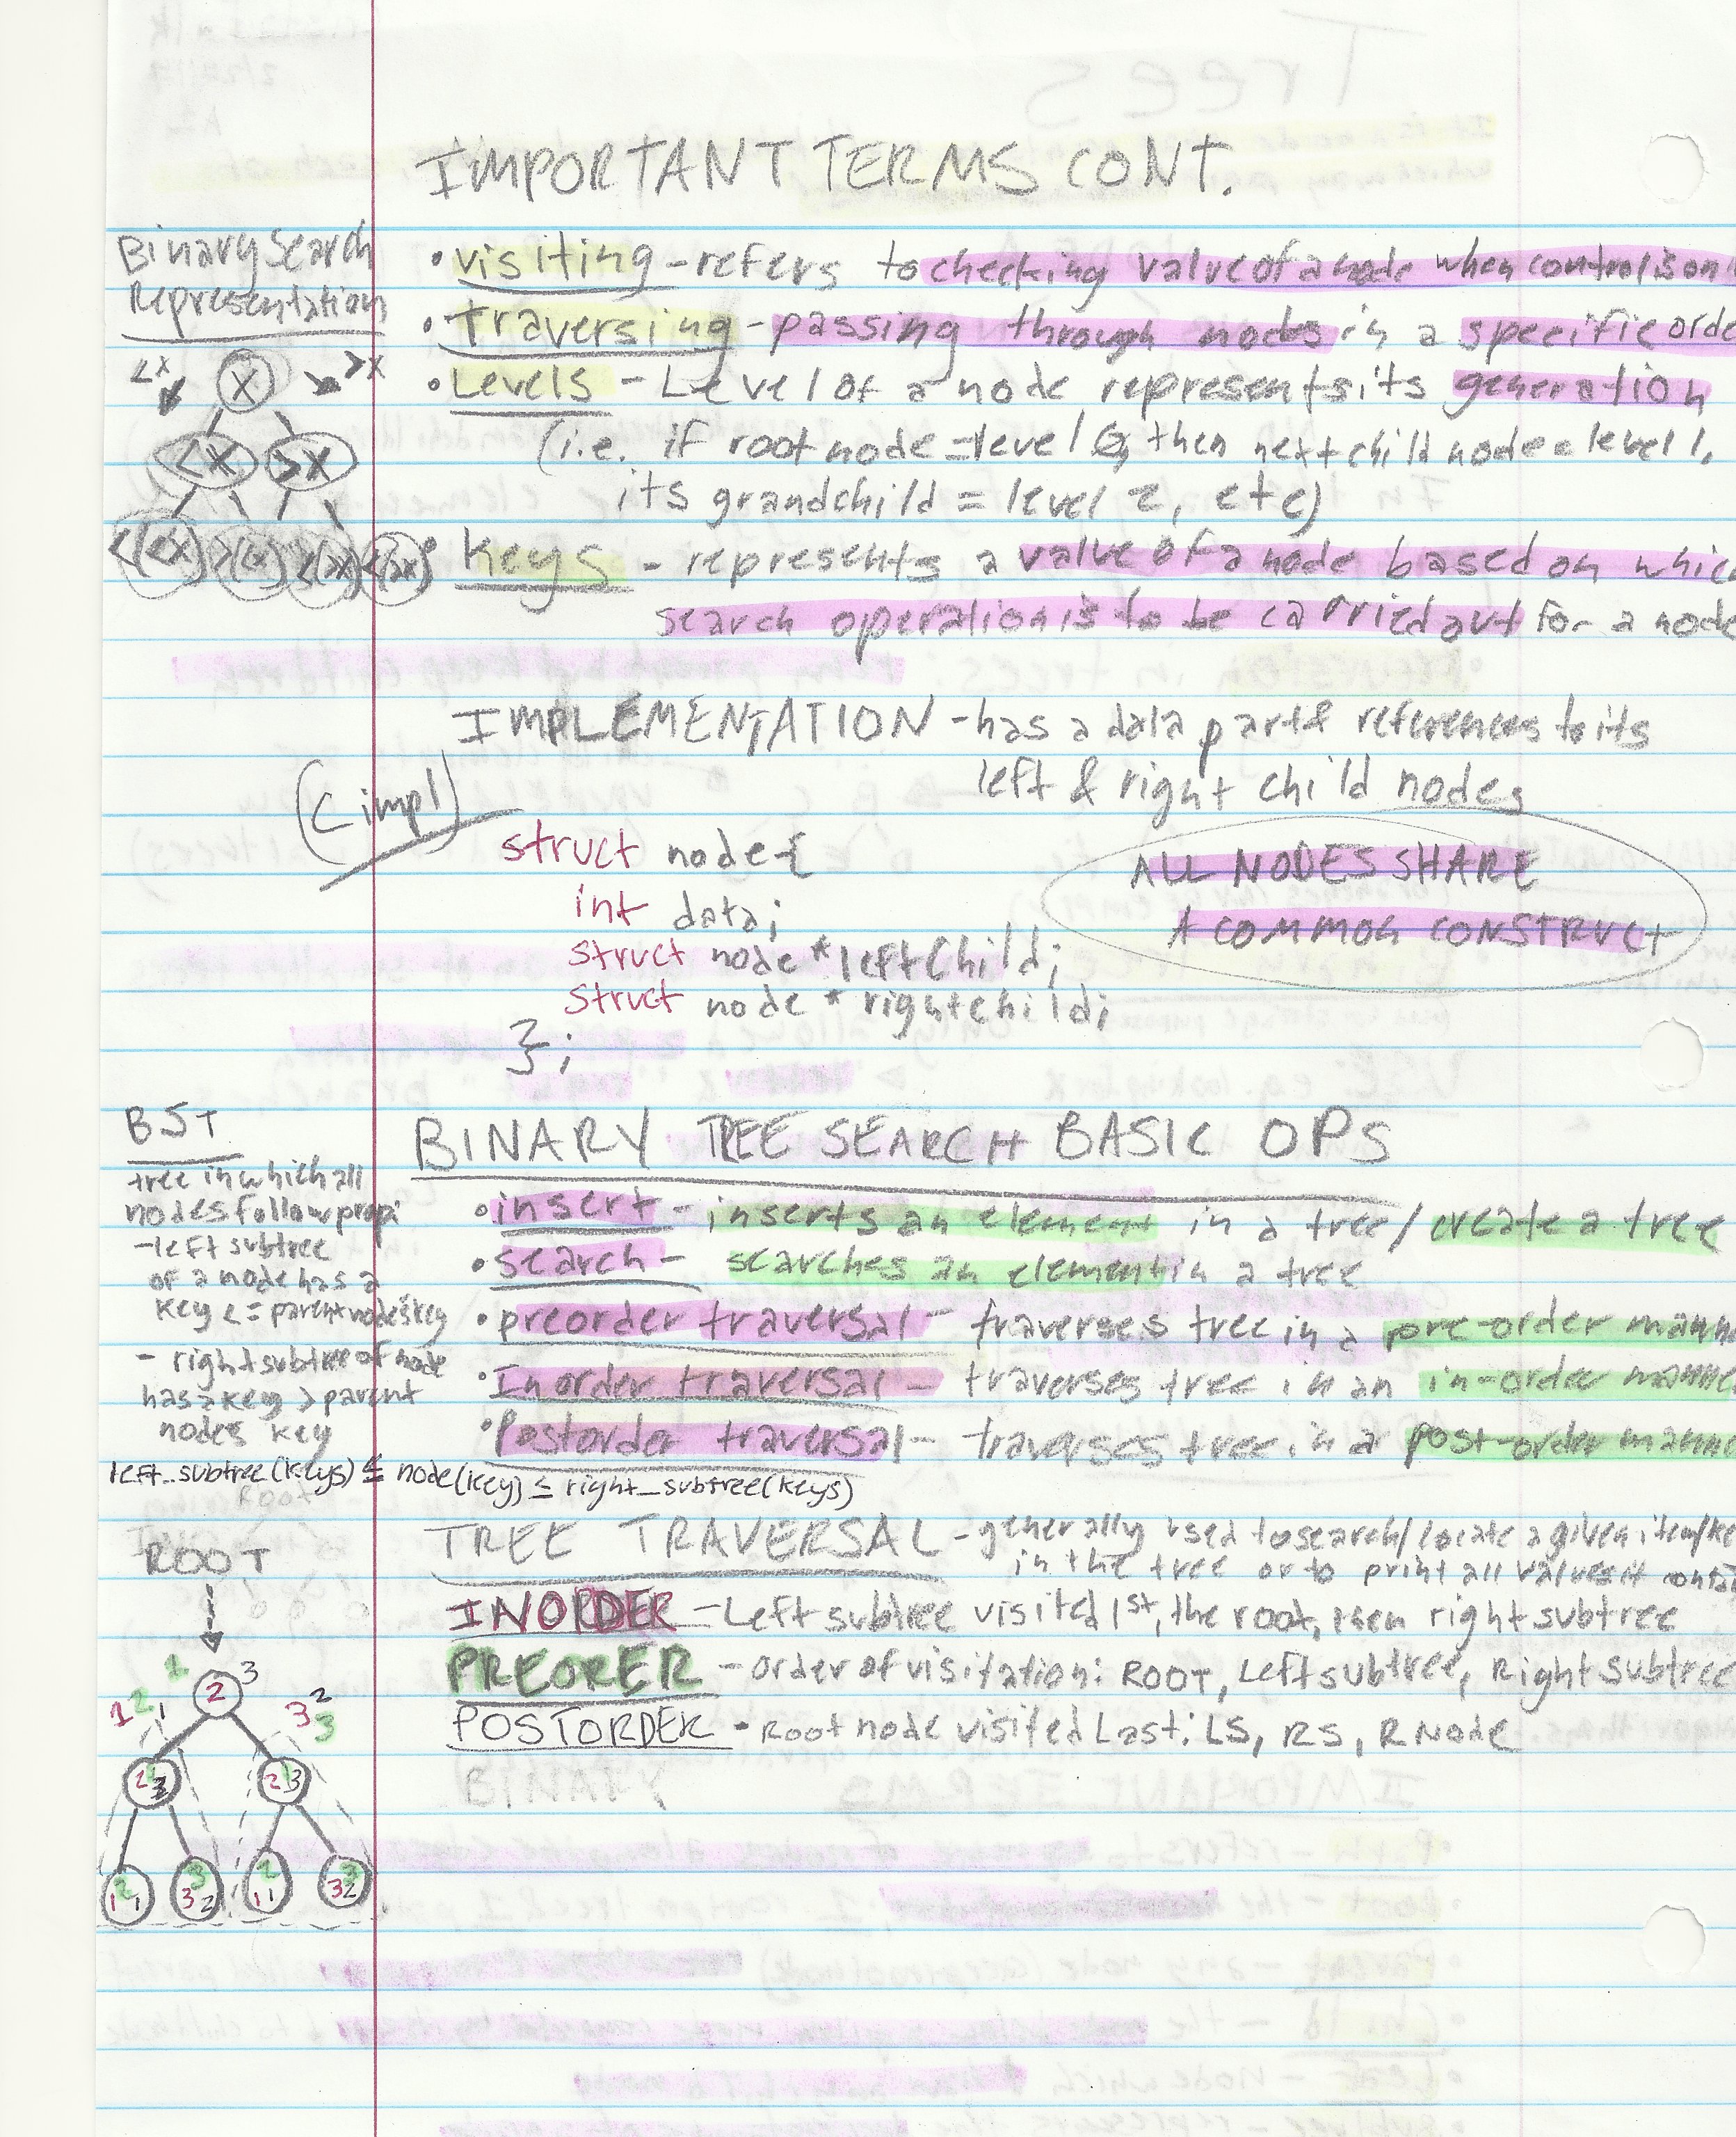 IMPORTANT TERMS CONT.
Binary Search
Representation
<x X >x
<X >X
<(<x) >(<x) <(>x) <(>x)
• visiting - refers to checking value of a node when control is on
• Traversing - passing through nodes in a specific orde
• Levels - Level of a node represents its generation
(i.e. if root node = level 0, then next child node = level 1,
its grandchild = level 2, etc)
• Keys - represents a value of a node based on whic
search operation is to be carried out for a node
IMPLEMENTATION - has a data part & references to its
left & right child nodes
(C impl)
struct node {
int data;
struct node *leftChild;
struct node *rightchild;
};
ALL NODES SHARE
A COMMON CONSTRUCT
BST
tree in which all
nodes follow prop:
- left subtree
of a node has a
key <= parent node's key
- right subtree of node
has a key > parent
nodes key
left_subtree(keys) ≤ node(key) ≤ right_subtree(keys)
BINARY TREE SEARCH BASIC OPS
• insert - inserts an element in a tree/create a tree
• search - searches an element in a tree
• preorder traversal - traverses tree in a pre-order mann
• Inorder traversal - traverses tree in an in-order manne
• Postorder traversal - traverses tree in a post-order manne
TREE TRAVERSAL - generally used to search/locate a given item/ke
in the tree or to print all values it conta
INORDER - Left subtree visited 1st, the root, then right subtree
PREORER - order of visitation: ROOT, Left subtree, Right subtree
POSTORDER - Root node visited Last: LS, RS, R Node
ROOT
1 2 3
1 2 1 3 2 3
2 1 3 2 1 3
1 2 1 3 3 2 1 2 1 3 3 2